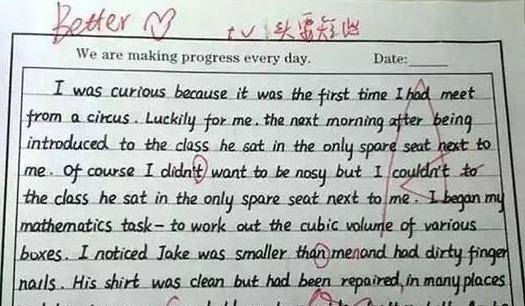 Better
t v 头要短些
We are making progress every day. Date:
I was curious because it was the first time I had meet
from a circus. Luckily for me. the next morning after being
introduced to the class he sat in the only spare seat next to
me. Of course I didn't want to be nosy but I couldn't to
the class he sat in the only spare seat next to me. I began my
mathematics task- to work out the cubic volume of various
boxes. I noticed Jake was smaller than menand had dirty finger
nails. His shirt was clean but had been repaired, in many places